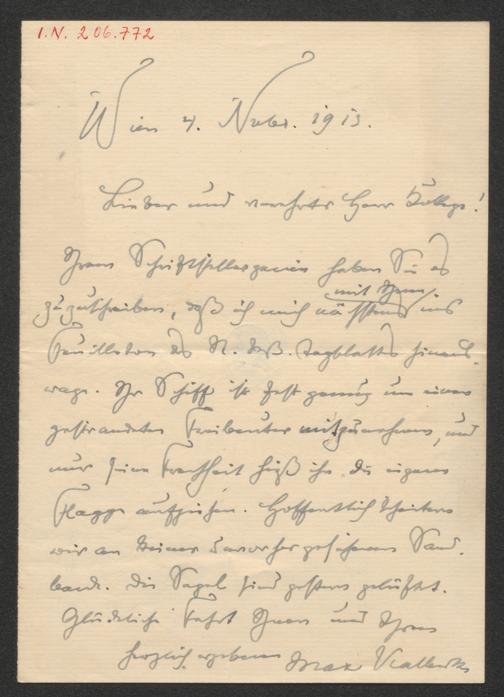 I.N. 206.772
Wien 4. Novbr. 1913.
Lieber und verehrter Herr Kollege!
Ihrem Schriftstellergenie haben Sie es
mit Ihnen
zuzuschreiben, daß ich mich nächstens ins
Feuilleton des N. Tagblatts hinaus-
wage. Ihr Schiff ist fest genug um einen
gestrandeten Freibeuter mitzunehmen, und
nur seine Frechheit hißt ihr die eigene
Flagge aufzuziehen. Hoffentlich scheitern
wir an keiner unvorhergesehenen Sand-
bank. Die Segel sind gestern gelüftet.
Glückliche Fahrt Ihnen und Ihrem
herzlich ergebenen Max